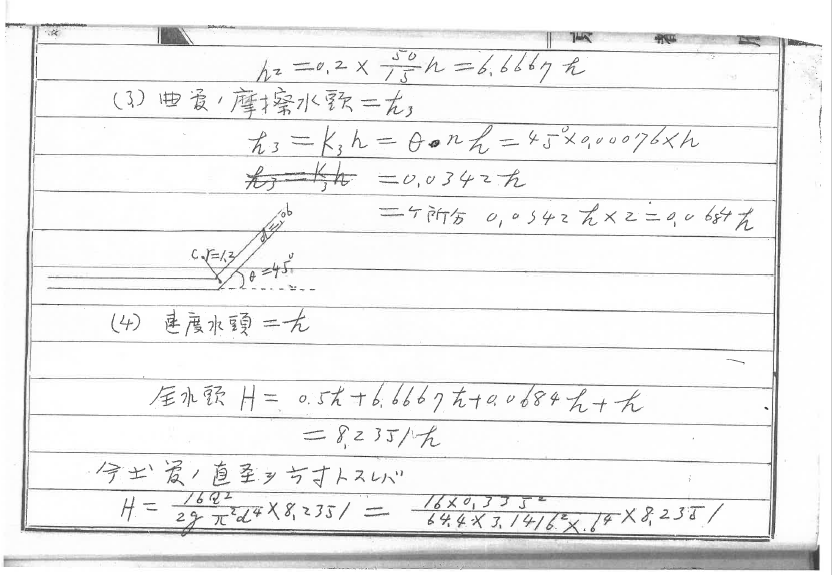 h₂ = 0.2 × 50/15 h = 6.6667 h
(3) 曲管ノ摩擦水頭 = h₃
h₃ = K₃h = θ・n h = 45°×0.00076×h
h₃ = K₃h = 0.0342 h
= 二ケ所分 0.0342 h × 2 = 0.0684 h
d = .06
C.r=1.2
θ = 45°
(4) 速度水頭 = h
全水頭 H = 0.5h + 6.6667 h + 0.0684 h + h
= 8.2351 h
今 管ノ直径ヲ 六寸トスレバ
H = 16Q²/2gπ²d⁴ × 8.2351 = 16×0.335²/64.4×3.1416²×.6⁴ × 8.2351